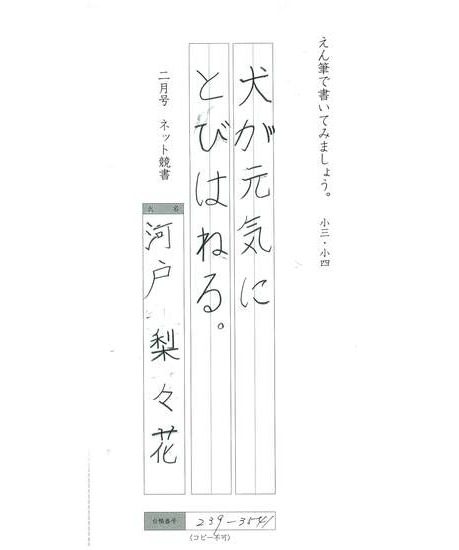 えん筆で書いてみましょう。 小三・小四
犬が元気に
とびはねる。
二月号 ネット競書
氏名
河戸 梨々花
会員番号 239-3541
(コピー不可)